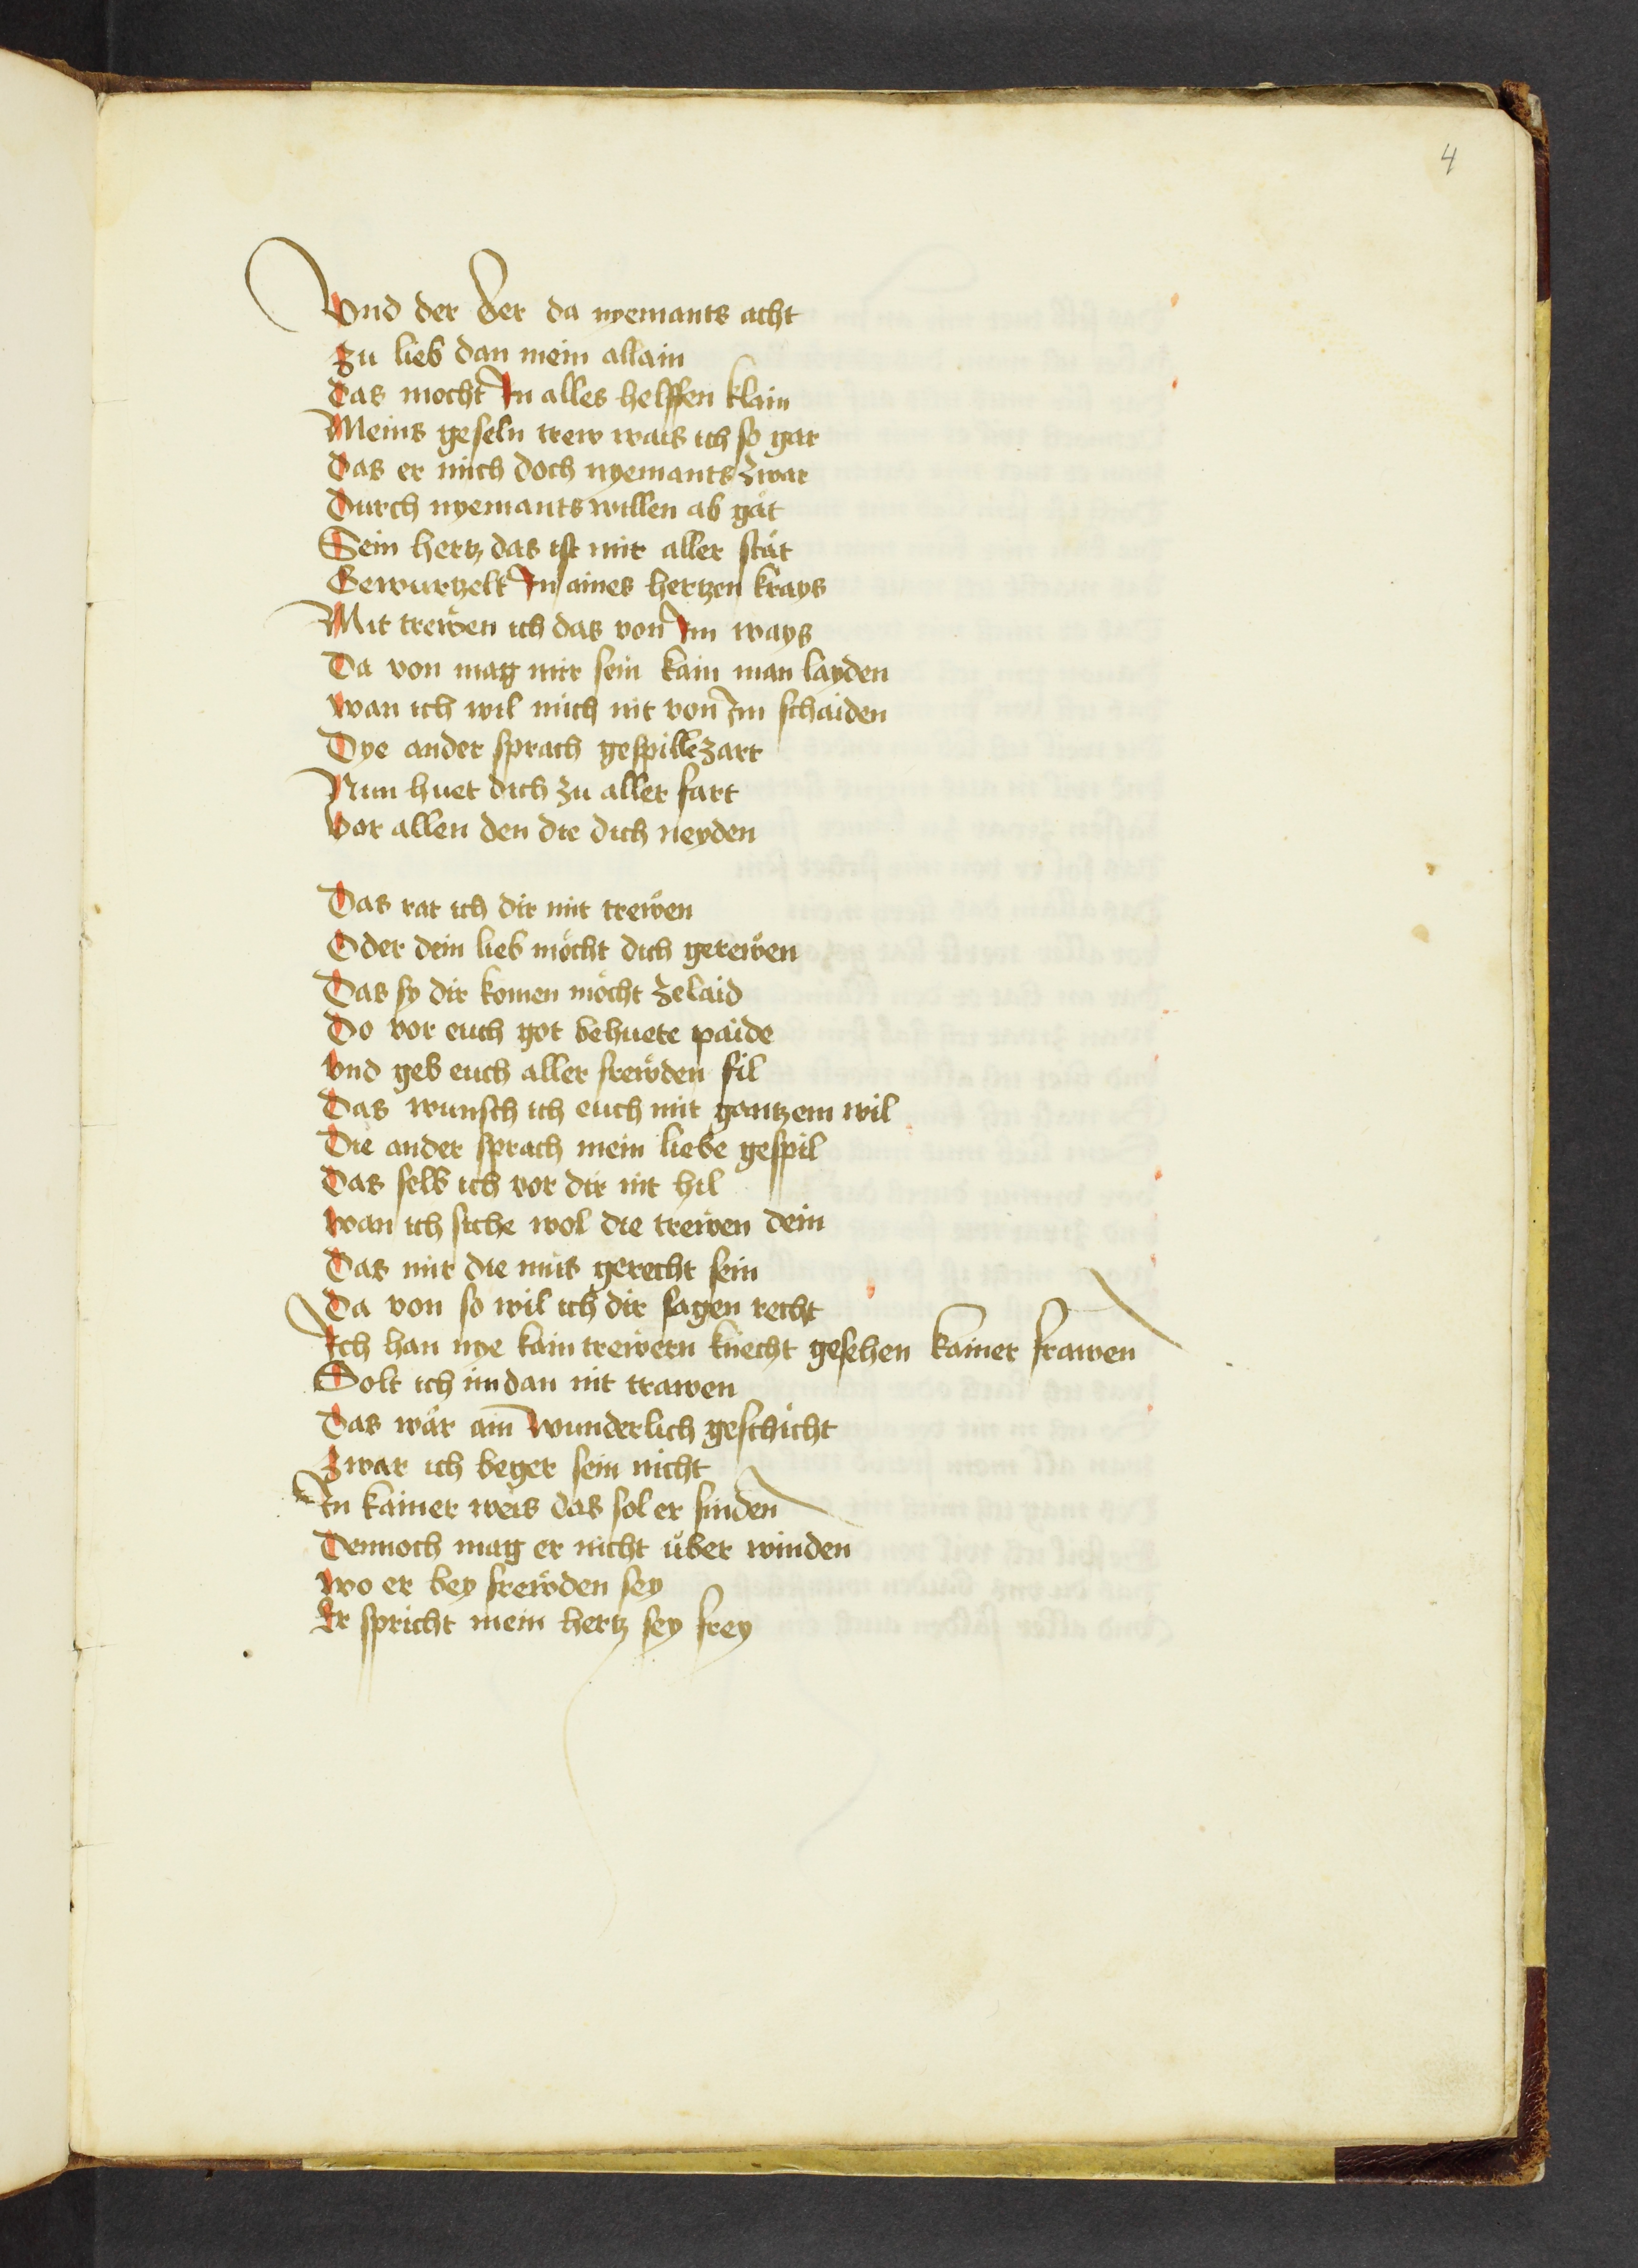 4
Vnd der der da nyemants acht
Zu lieb dan mein allain
Das mocht In alles helffen klain
Meins geseln trew wais ich so gar
Das er mich doch nyemants zwar
Durch nyemants willen ab gät
Sein hertz das ist mir aller stät
Gewurtzelt In aines hertzen krays
Mit trewen ich das von Im ways
Da von mag mir sein kain man layden
wan ich wil mich nit von Im schaiden
Dye ander sprach gespille zart
Nun huet dich zu aller fart
vor allen den die dich neyden
Das rat ich dir mit trewen
Oder dein lieb möcht dich gerewen
Das sy dir komen möcht ze laid
Do vor euch got behuete paide
vnd geb euch aller frewden fil
Das wunsch ich euch mit gantzem wil
Die ander sprach mein liebe gespil
Das selb ich vor dir nit hil
wan ich siche wol die trewen dein
Das mir die mus gerecht sein
Da von so wil ich dir sagen recht
Ich han nye kain trewern knecht gesehen kainer frawen
Solt ich im dan nit trawen
Das wär ain wunderlich geschicht
Zwar ich beger sein nicht
In kainer weis das sol er finden
Dennoch mag er nicht über winden
wo er bey frewden sey
Er spricht mein hertz sey frey